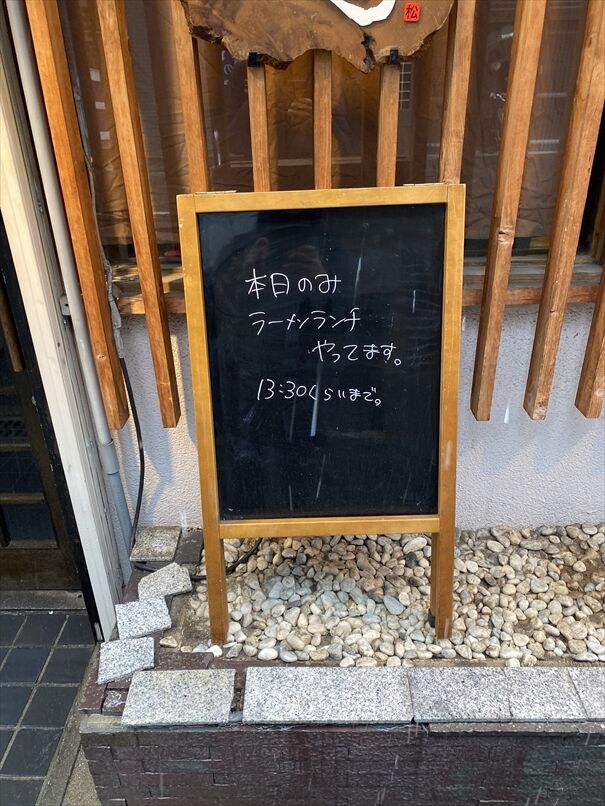 松
本日のみ
ラーメンランチ
やってます。
13:30くらいまで。